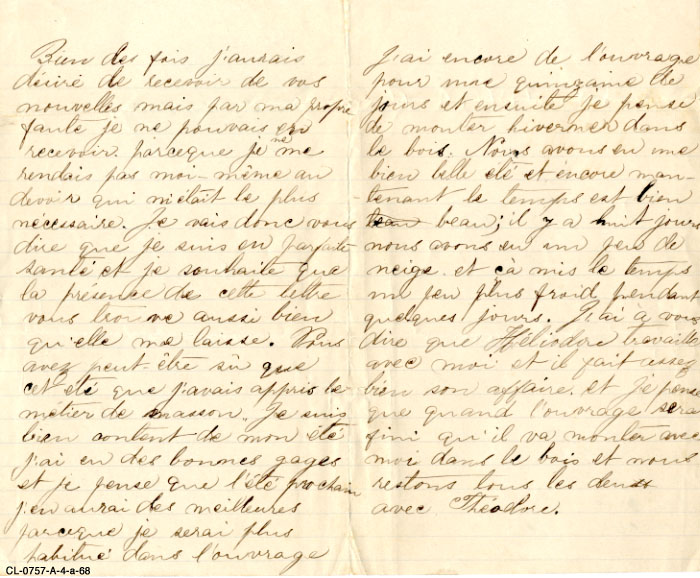 Bien des fois j'aurais
désiré de recevoir de vos
nouvelles mais par ma propre
faute je ne pouvais en
recevoir. parceque je ne me
rendais pas moi-même au
devoir qui m'était le plus
nécessaire. Je vais donc vous
dire que je suis en parfaite
santé et je souhaite que
la présence de cette lettre
vous trouve aussi bien
qu'elle me laisse. Vous
avez peut-être sû que
cet été que j'avais appris le
métier de masson. Je suis
bien content de mon été
j'ai eu des bonnes gages
et je pense que l'été prochain
j'en aurai des meilleures
parceque je serai plus
habitué dans l'ouvrage
J'ai encore de l'ouvrage
pour une quinzaine de
jours et ensuite je pense
de monter hiverner dans
le bois. Nous avons eu une
bien belle été et encore main-
tenant le temps est bien
beau beau; il y a huit jours
nous avons eu un peu de
neige. et çà mis le temps
un peu plus froid pendant
quelques jours. J'ai à vous
dire que Héliodore travaille
avec moi et il fait assez
bien son affaire. et je pense
que quand l'ouvrage sera
fini qu'il va monter avec
moi dans le bois et nous
restons tous les deux
avec Théodore.
CL-0757-A-4-a-68